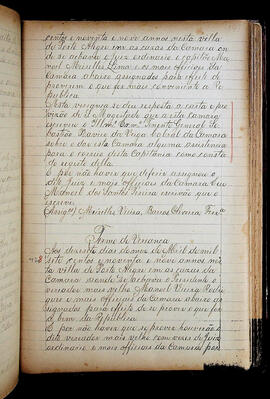 centos e noventa e nove annos nesta villa
de Porto Alegre em as casas da Camara on
de se achava o Juiz ordinario e capitão Ma
noel Meirelles Lima e os mais officiaes da
Camara abaixo assignados para effeito de
proverem o que for mais conveniente a Re
publica
Nesta vereança se deu resposta a carta e pro
visão de S. Magestade que a esta camara
escreveu o
bastião Xavier da Veiga Cabral da Camara
sobre o dar esta Camara alguma assistencia
para o corpo desta Capitania como consta
do registo della
E por não haver que deferir assignou o
dito Juiz e mais officiaes da Camara Eu
Manoel dos Santos Pereira escrivão que o
escrevi
Assigos Meirelles Vieira, Barros
Termo de Vereança
Aos dezoito dias do mes de Abril de mil
sete centos e noventa e nove annos nes
ta villa de Porto Alegre em as casas da
Camara aonde se achava o Presidente o
vereador mais velho Manoel Vieira Rodri
gues e mais officiaes da Camara abaixo as
signados para effeito de se prover o que for
a bem da Republica
E por não haver que se prover houverão o
dito vereador mais velho com vezes de Juiz
ordinario e mais officiaes da Camara por